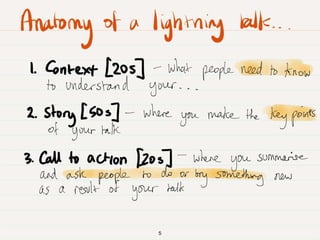 Anatomy of a lightning talk...
1. Context [20s] - What people need to know
to understand your...
2. Story [50s] - where you make the key points
of your talk
3. Call to action [20s] - where you summarise
and ask people to do or try something new
as a result of your talk
5